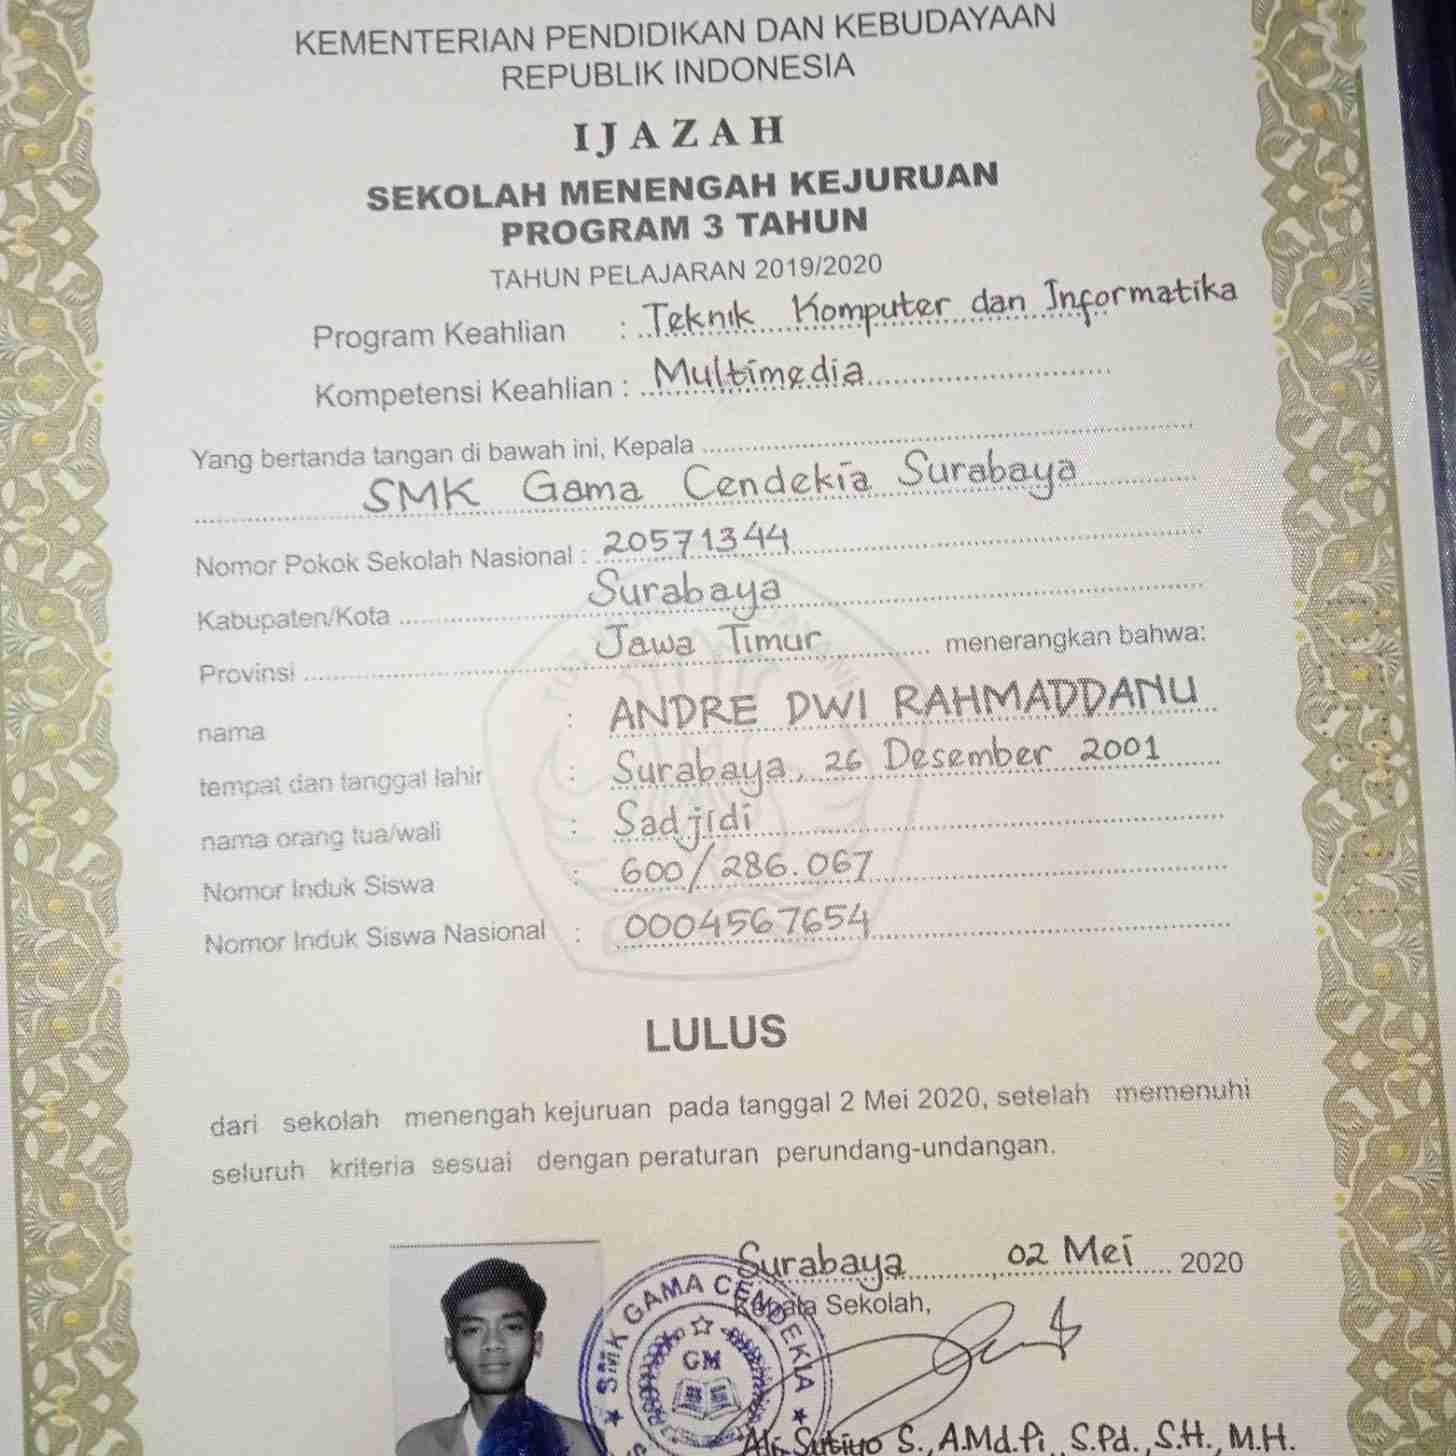 KEMENTERIAN PENDIDIKAN DAN KEBUDAYAAN
REPUBLIK INDONESIA
IJAZAH
SEKOLAH MENENGAH KEJURUAN
PROGRAM 3 TAHUN
TAHUN PELAJARAN 2019/2020
Program Keahlian : Teknik Komputer dan Informatika
Kompetensi Keahlian : Multimedia
Yang bertanda tangan di bawah ini, Kepala
SMK Gama Cendekia Surabaya
Nomor Pokok Sekolah Nasional : 20571344
Kabupaten/Kota Surabaya
Provinsi Jawa Timur menerangkan bahwa:
nama : ANDRE DWI RAHMADDANU
tempat dan tanggal lahir : Surabaya, 26 Desember 2001
nama orang tua/wali : Sadjidi
Nomor Induk Siswa : 600/286.067
Nomor Induk Siswa Nasional : 0004567654
LULUS
dari sekolah menengah kejuruan pada tanggal 2 Mei 2020, setelah memenuhi
seluruh kriteria sesuai dengan peraturan perundang-undangan.
Surabaya, 02 Mei 2020
Kepala Sekolah,
SMK GAMA CENDEKIA
GM
Ali Sutiyo S., A.Md.Pi., S.Pd., S.H., M.H.